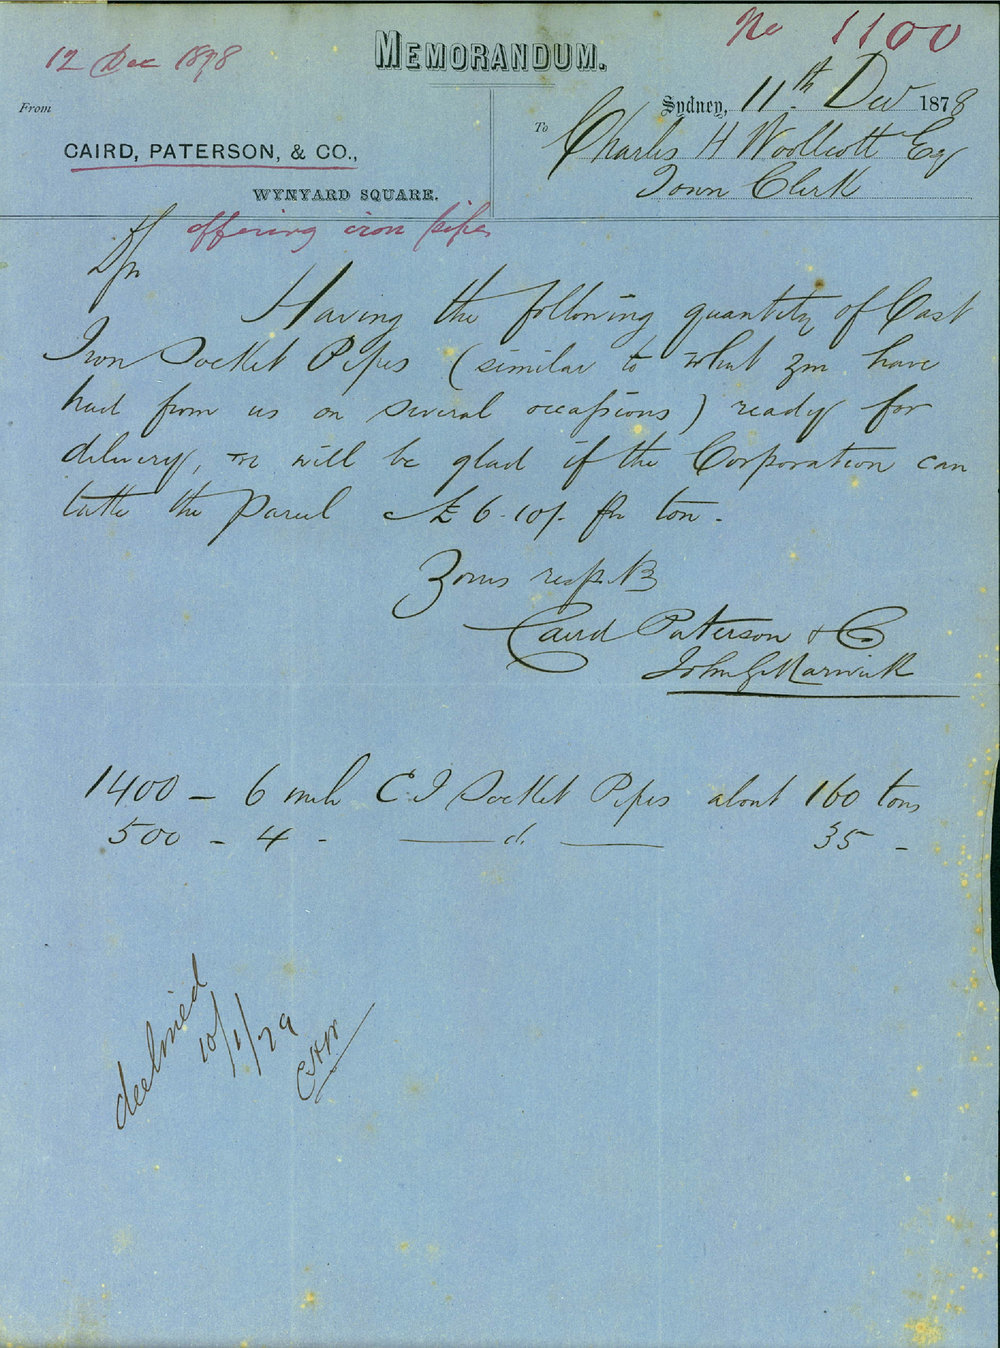 No 1100
12 Dec 1878
MEMORANDUM.
Sydney, 11th Decr 1878
From
To
CAIRD, PATERSON, & CO.,
WYNYARD SQUARE.
Charles H Woolcott Esq
Town Clerk
offering iron pipes
Having the following quantity of Cast
Iron Socket Pipes (similar to what you have
had from us on several occassions) ready for
delivery, we will be glad if the Corporation can
take the parcel @ £6.10/- per ton.
Yours respy
Caird Paterson & Co
John G Marwick
1400 - 6 inch C.I Socket Pipes about 160 tons
500 - 4 - do 35 -
declined
10/1/79
CHW